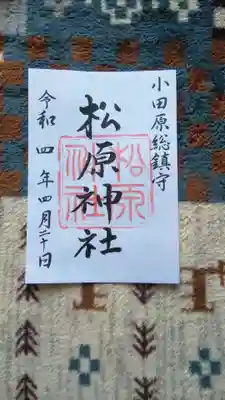 小田原総鎮守
松原神社
松原
神社
令和四年四月二十日